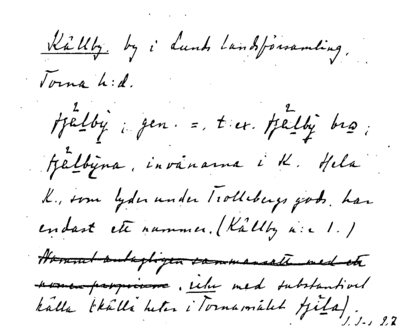 Källby. by i Lunds landsförsamling,
Torna h:d.
fjälby ; gen. =, t. ex. fjälby bro ;
fjälbyna, invånarna i K. Hela
K., som lyder under Trollebergs gods, har
endast ett nummer. (Källby n:r 1.)
Namnet antagligen sammansatt med ett
nomen proprium, icke med substantivet
källa (källa heter i Tornamålet fjéla).